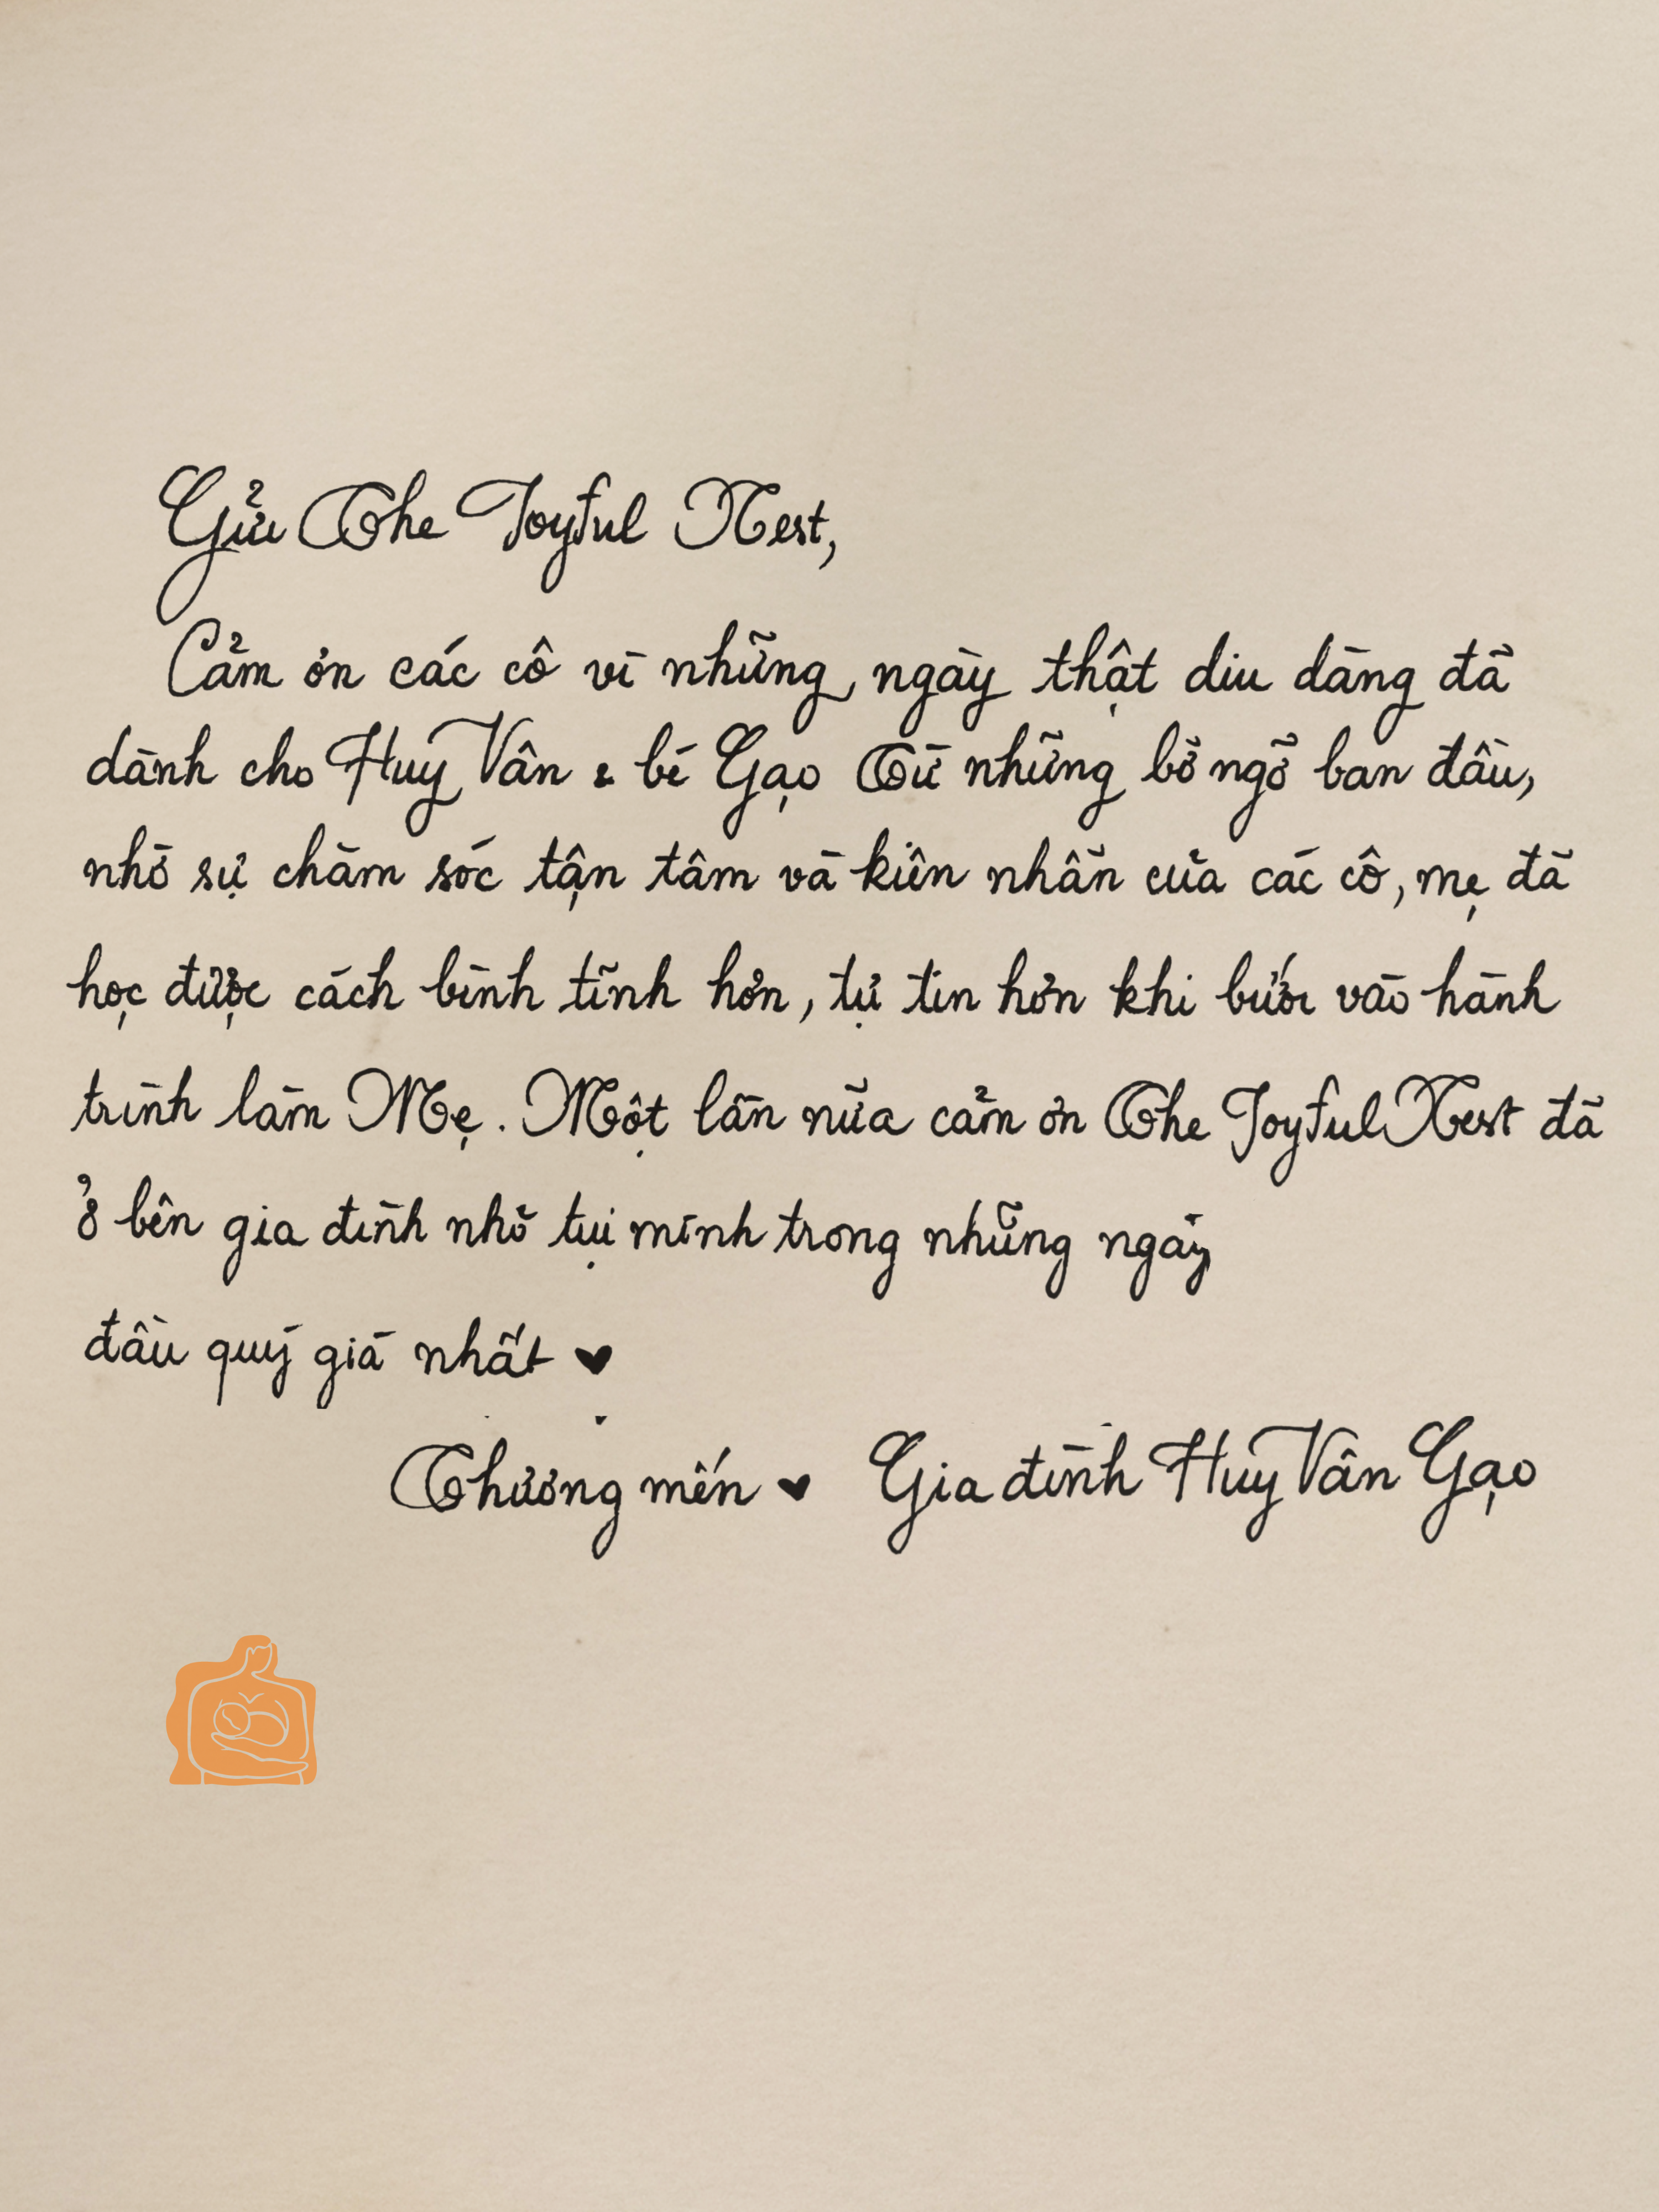 Gửi The Joyful Nest,
Cảm ơn các cô vì những ngày thật dịu dàng đã
dành cho Huy Vân & bé Gạo Từ những bỡ ngỡ ban đầu,
nhờ sự chăm sóc tận tâm và kiên nhẫn của các cô, mẹ đã
học được cách bình tĩnh hơn, tự tin hơn khi bước vào hành
trình làm Mẹ. Một lần nữa cảm ơn The Joyful Nest đã
ở bên gia đình nhỏ tụi mình trong những ngày
đầu quý giá nhất ♥
Thương mến ♥ Gia đình Huy Vân Gạo